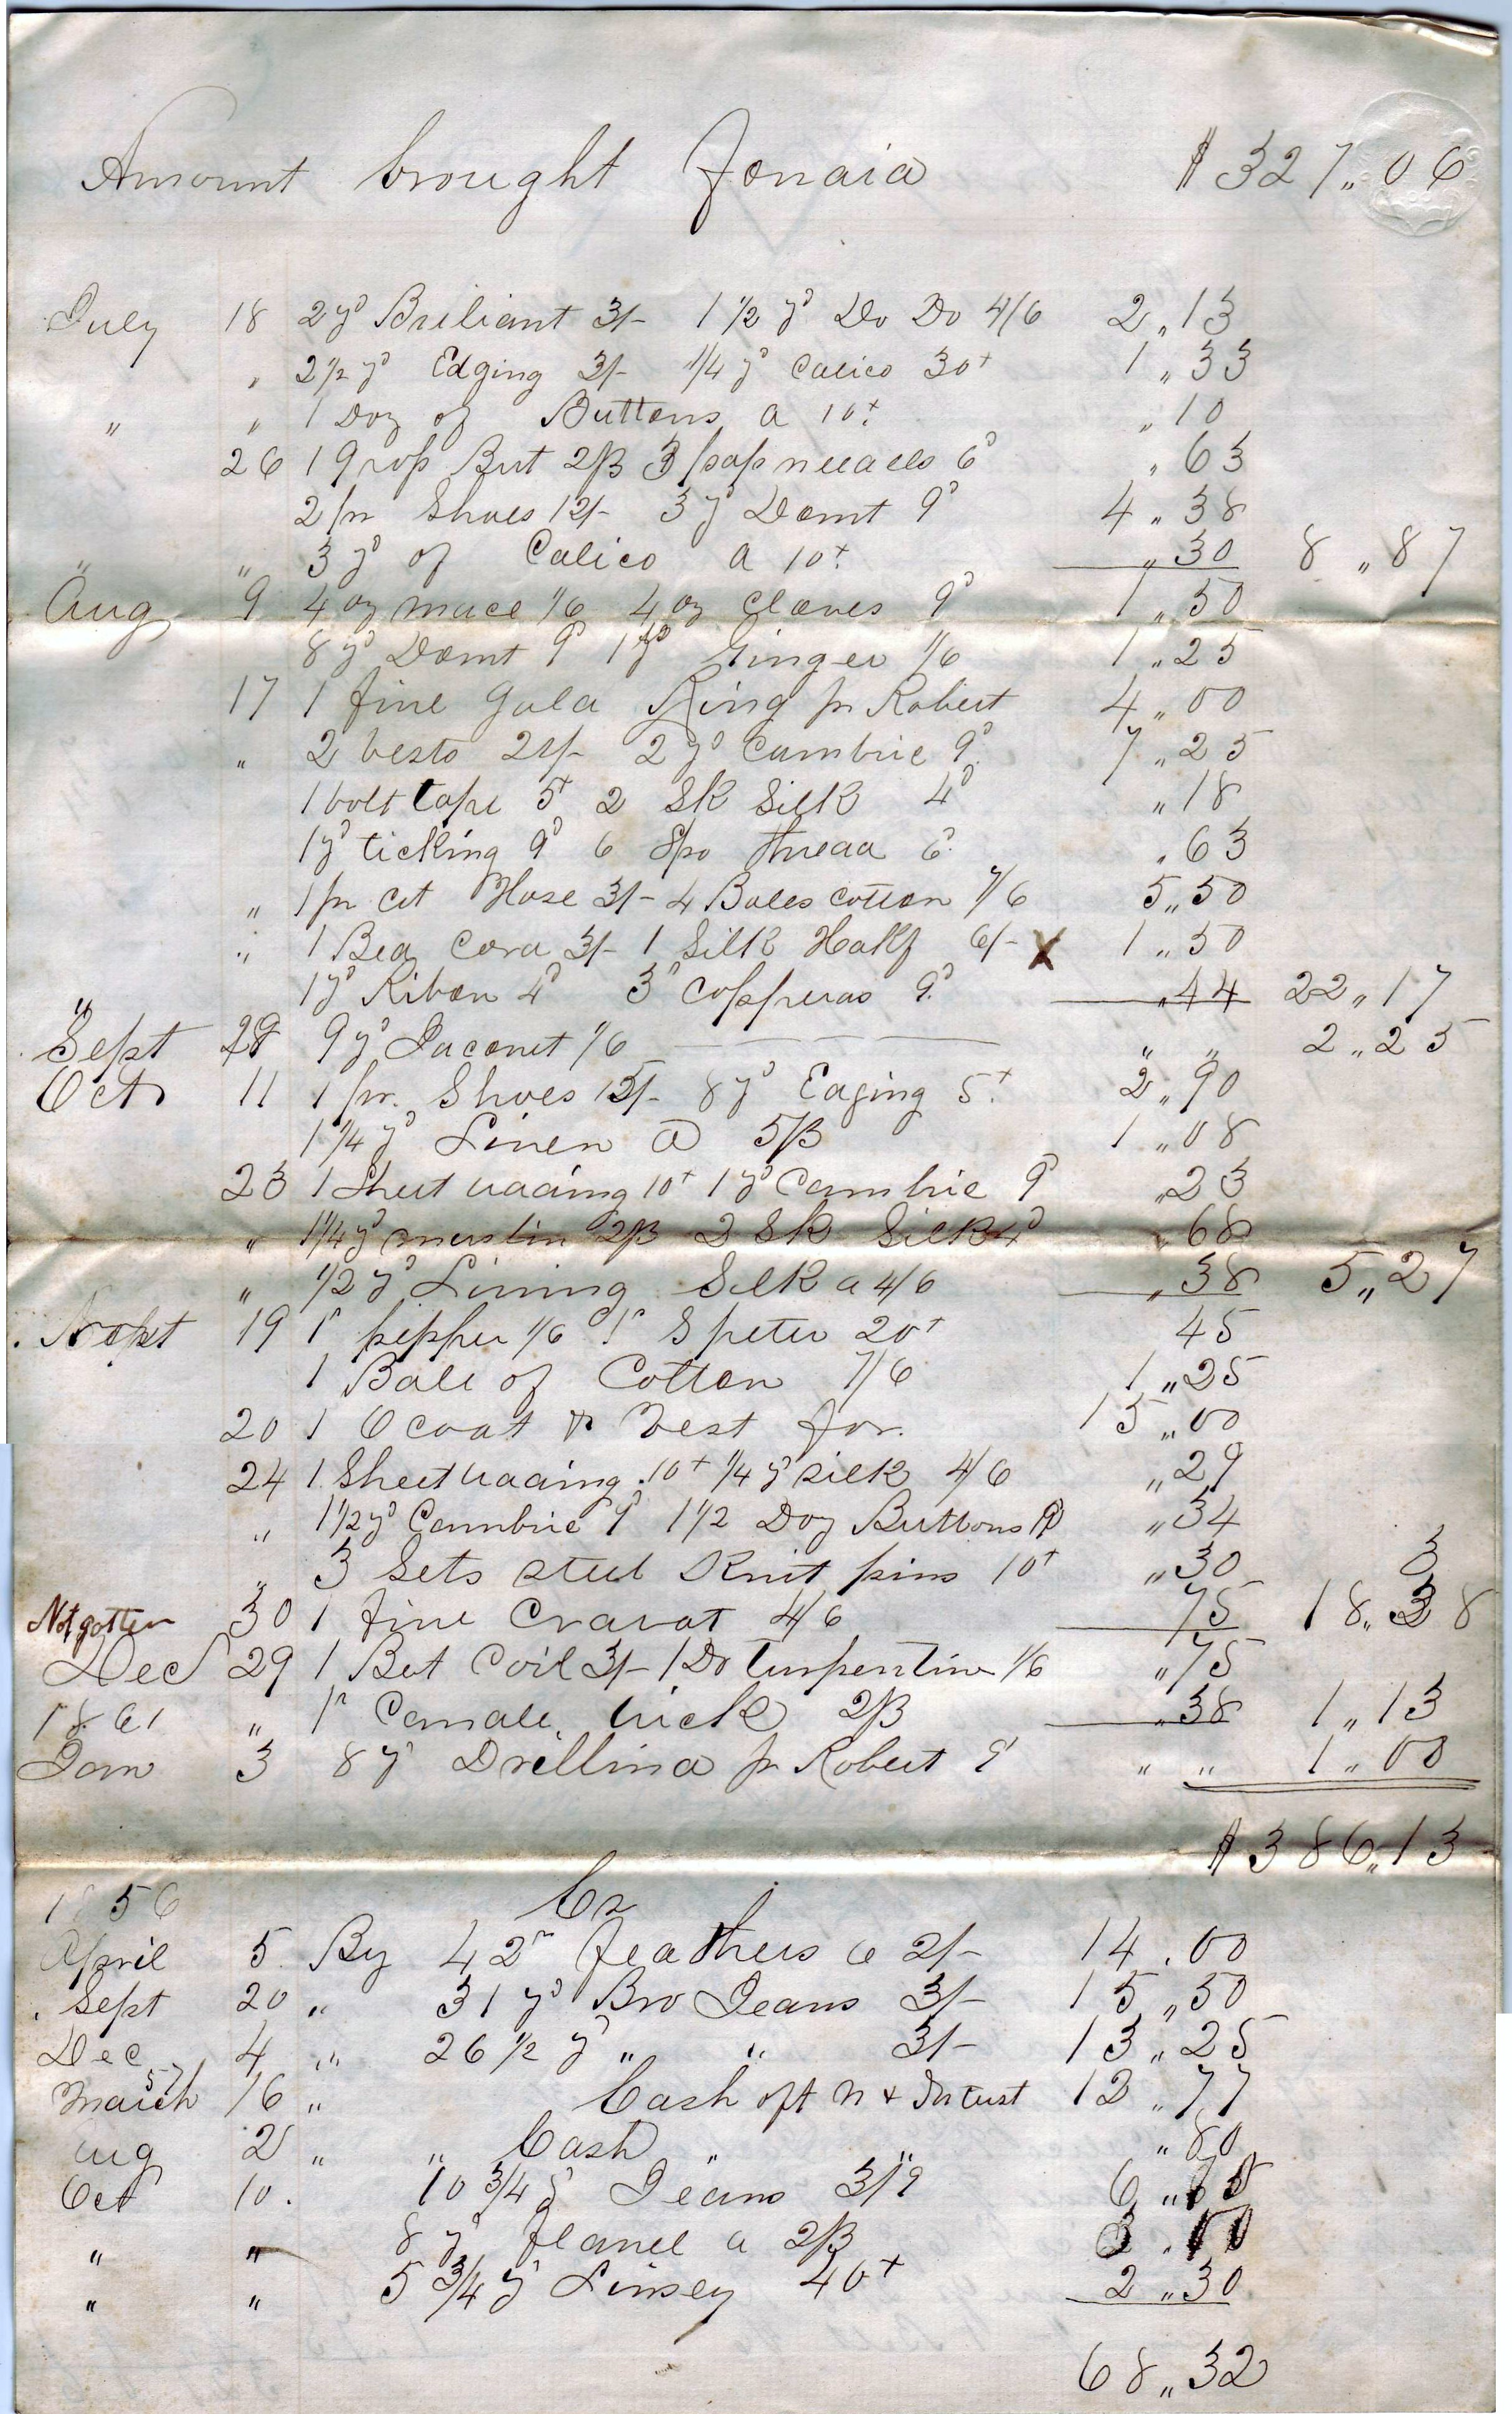 Amount brought forward $327,,06
July 18 2 yd Briliant 3/- 1 1/2 yd Do Do 4/6 2,,13
" 2 1/2 yd Edging 3/- 1/4 yd Calico 30+ 1,,33
" " 1 Doz of Buttons a 10+ ,,10
26 1 Gross But 2/3 3 paps needles 6d ,,63
2 pr Shoes 12/- 3 yd Domt 9d 4,,38
" " 3 yd of Calico a 10+ ,,30 8,,87
Aug 9 4 oz mace 1/6 4 oz Cloves 9d 1,,50
8 yd Domt 9d 1 Ginger 1/6 1,,25
17 1 fine Gold Ring pr Robert 4,,00
" 2 Vests 21/- 2 yd Cambric 9d 7,,25
1 bolt tape 5+ 2 Sk Silk 4d ,,18
1 yd ticking 9d 6 Spo thread 6d ,,63
" 1 pr Hose 3/- 4 Bales Cotton 7/6 5,,50
" 1 Bed Cord 3/- 1 Silk Hdkf 6/- X 1,,50
" 1 yd Ribon 4d 3 Copperas 9d ,,44 22,,17
Sept 29 9 yd Jaconet 1/6 " " 2,,25
Oct 11 1 pr. Shoes 15/- 8 yd Edging 5+ 2,,90
1 1/4 yd Linen @ 5/3 1,,08
23 1 Sheet wading 10+ 1 yd Cambric 9d ,,23
" 1 1/4 yd muslin 2/3 2 Sk Silk 4d ,,68
" 1/2 yd Lining Silk a 4/6 ,,38 5,,27
19 1 pepper 1/6 1 S peter 20+ 45
1 Bale of Cotton 7/6 1,,25
20 1 O coat & Vest for. 15,,00
24 1 Sheet wading 10+ 1/4 yd Silk 4/6 ,,29
" 1 1/2 yd Cambric 9d 1 1/2 Doz Buttons 9d ,,34
" 3 Sets steel Knit pins 10+ ,,30 3
Not gotten 30 1 fine Cravat 4/6 75 18,,38
Dec 29 1 Bot Coil 3/- 1 Do Turpentine 1/6 ,,75
1861 " 1 Candle wick 2/3 ,,38 1,,13
Jan 3 8 yd Drilling pr Robert 9d " " 1,,00
$386,,13
1856 Cr
April 5 By 42 feathers @ 2/- 14,,00
Sept 20 " 31 yd Bro Jeans 3/- 15,,50
Dec 4 " 26 1/2 yd " " 3/- 13,,25
57
March 16 " Cash oft n & Intrust 12,,77
Aug 2 " " Cash " " ,,80
Oct 10. 10 3/4 yd Jeans 3/9 6,,
" " 8 yd flanel a 2/3 3,,00
" " 5 3/4 yd Linsey 40+ 2,,30
68,,32